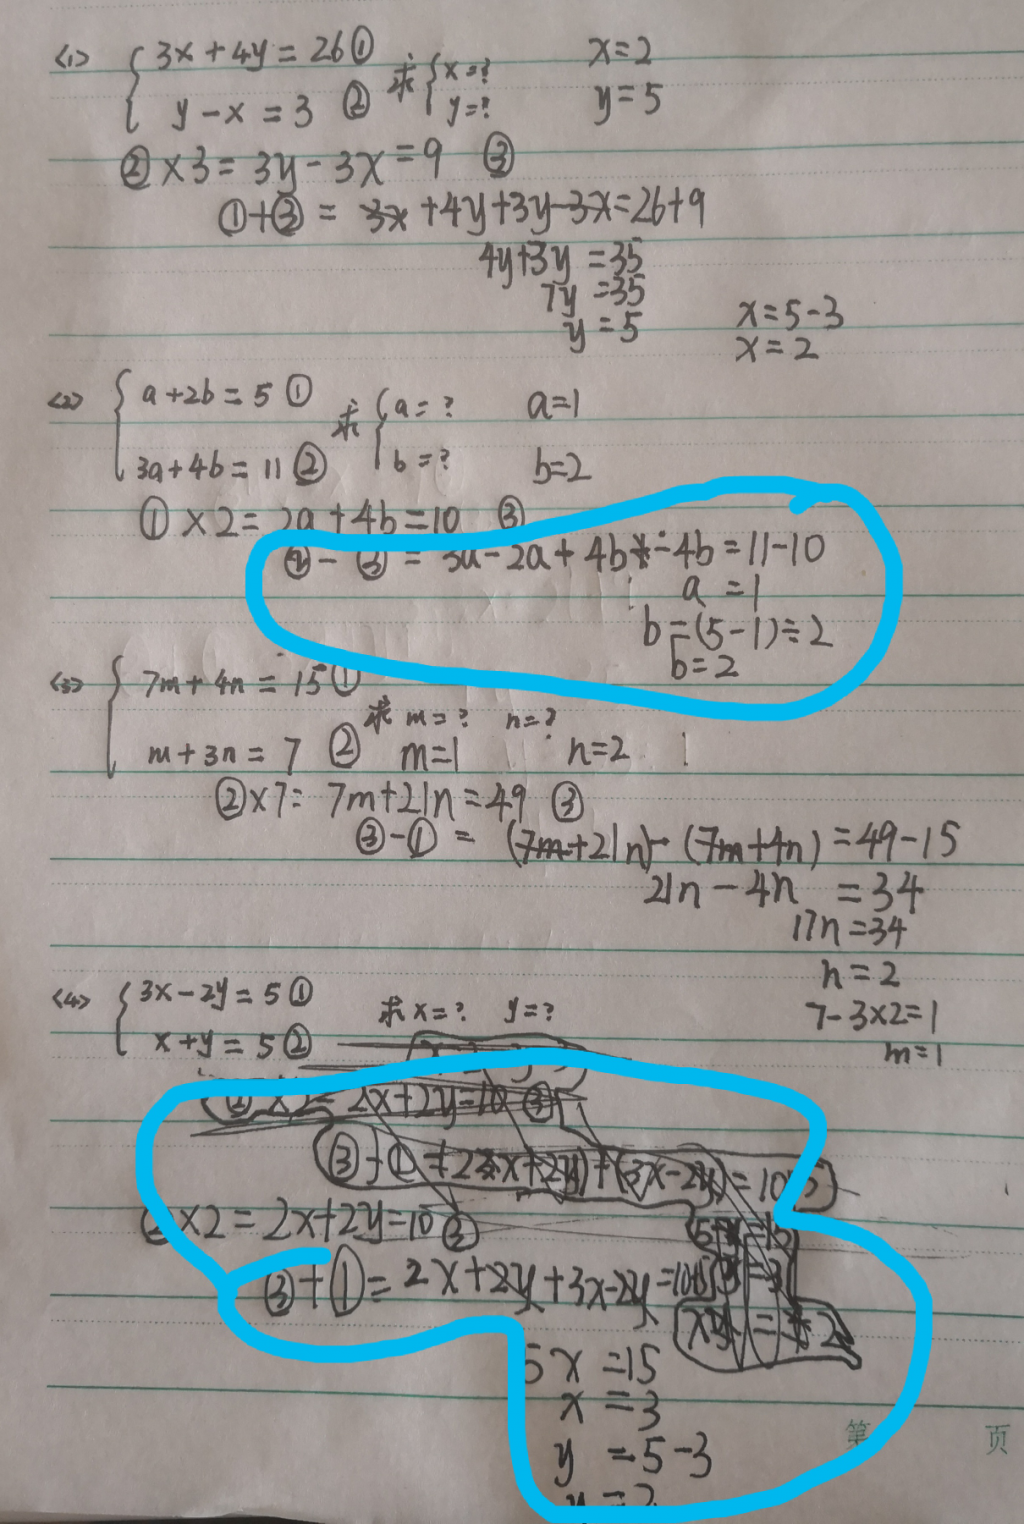 <1> 3x+4y=26① 求 x=? x=2
y-x=3 ② y=? y=5
②×3=3y-3x=9 ③
①+③= 3x+4y+3y-3x=26+9
4y+3y=35
7y=35
y=5
x=5-3
x=2
<2> a+2b=5① 求 a=? a=1
3a+4b=11② b=? b=2
①×2=2a+4b=10 ③
②-③=3a-2a+4b-4b=11-10
a=1
b=(5-1)÷2
b=2
<3> 7m+4n=15①
求 m=? n=?
m+3n=7 ② m=1 n=2
②×7= 7m+21n=49 ③
③-①= (7m+21n)-(7m+4n)=49-15
21n-4n=34
17n=34
n=2
7-3×2=1
m=1
<4> 3x-2y=5① 求x=? y=?
x+y=5②
②×2=2x+2y=10 ③
②×2=2x+2y=10③
③+①=2x+2y+3x-2y=10+5
5x=15
x=3
y=5-3
y=2
第 页